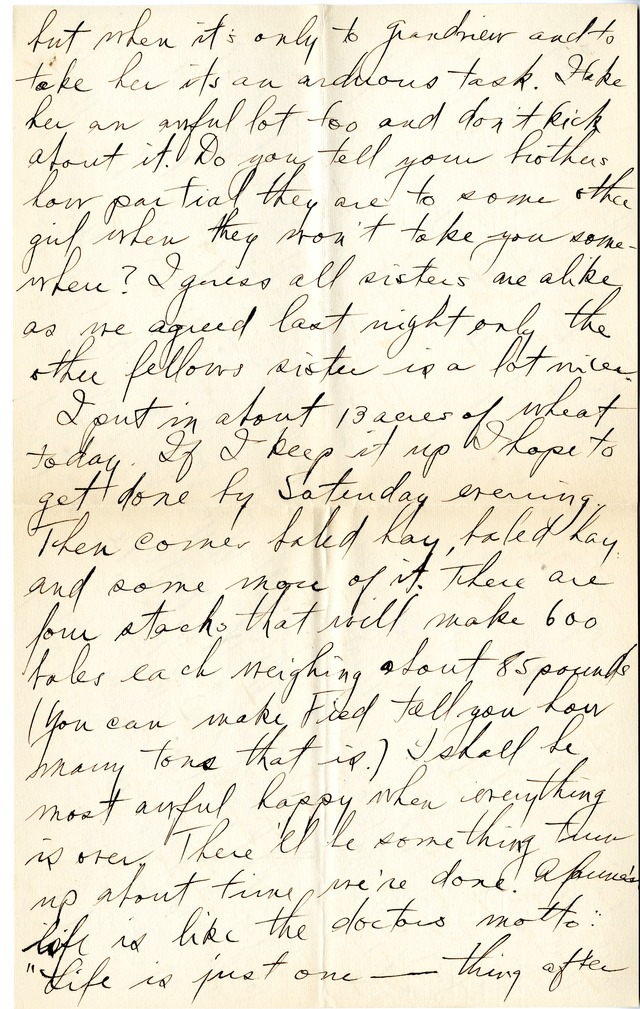 but when it's only to Grandview and to
take her its an arduous task. I take
her an awful lot too and don't kick
about it. Do you tell your brothers
how partial they are to some other
girl when they won't take you some-
where? I guess all sisters are alike
as we agreed last night only the
other fellows sister is a lot nicer.
I put in about 13 acres of wheat
today. If I keep it up I hope to
get done by Saturday evening.
Then comes baled hay, baled hay
and some more of it. There are
four stacks that will make 600
bales each weighing about 85 pounds
(You can make Fred tell you how
many tons that is.) I shall be
most awful happy when everything
is over. There'll be something turn
up about time we're done. A farmer's
life is like the doctors motto:
"Life is just one — thing after